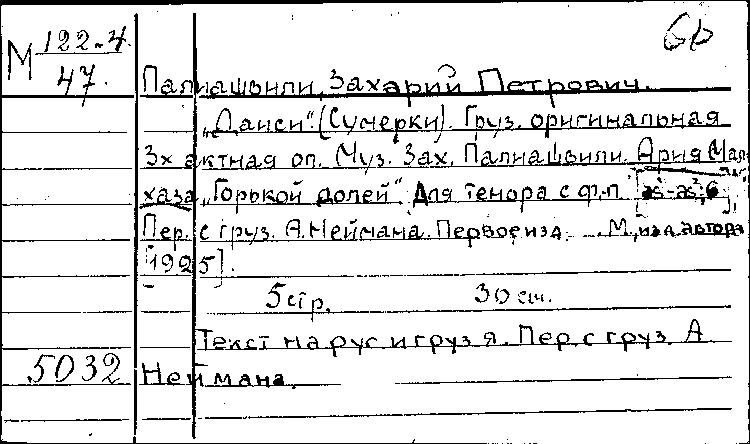 М 122-4
47.
6b
Палиашвили, Захарий Петрович.
„Даиси". (Сумерки). Груз. оригинальная
3х актная оп. Муз. Зах. Палиашвили. Ария Мал-
хаза „Горькой долей". Для тенора с ф.п.
Пер. с груз. А. Неймана. Первое изд. М., изд. автора
[1925].
5 стр. 30 см.
Текст на рус и груз я. Пер. с груз. А
5032 Неймана.